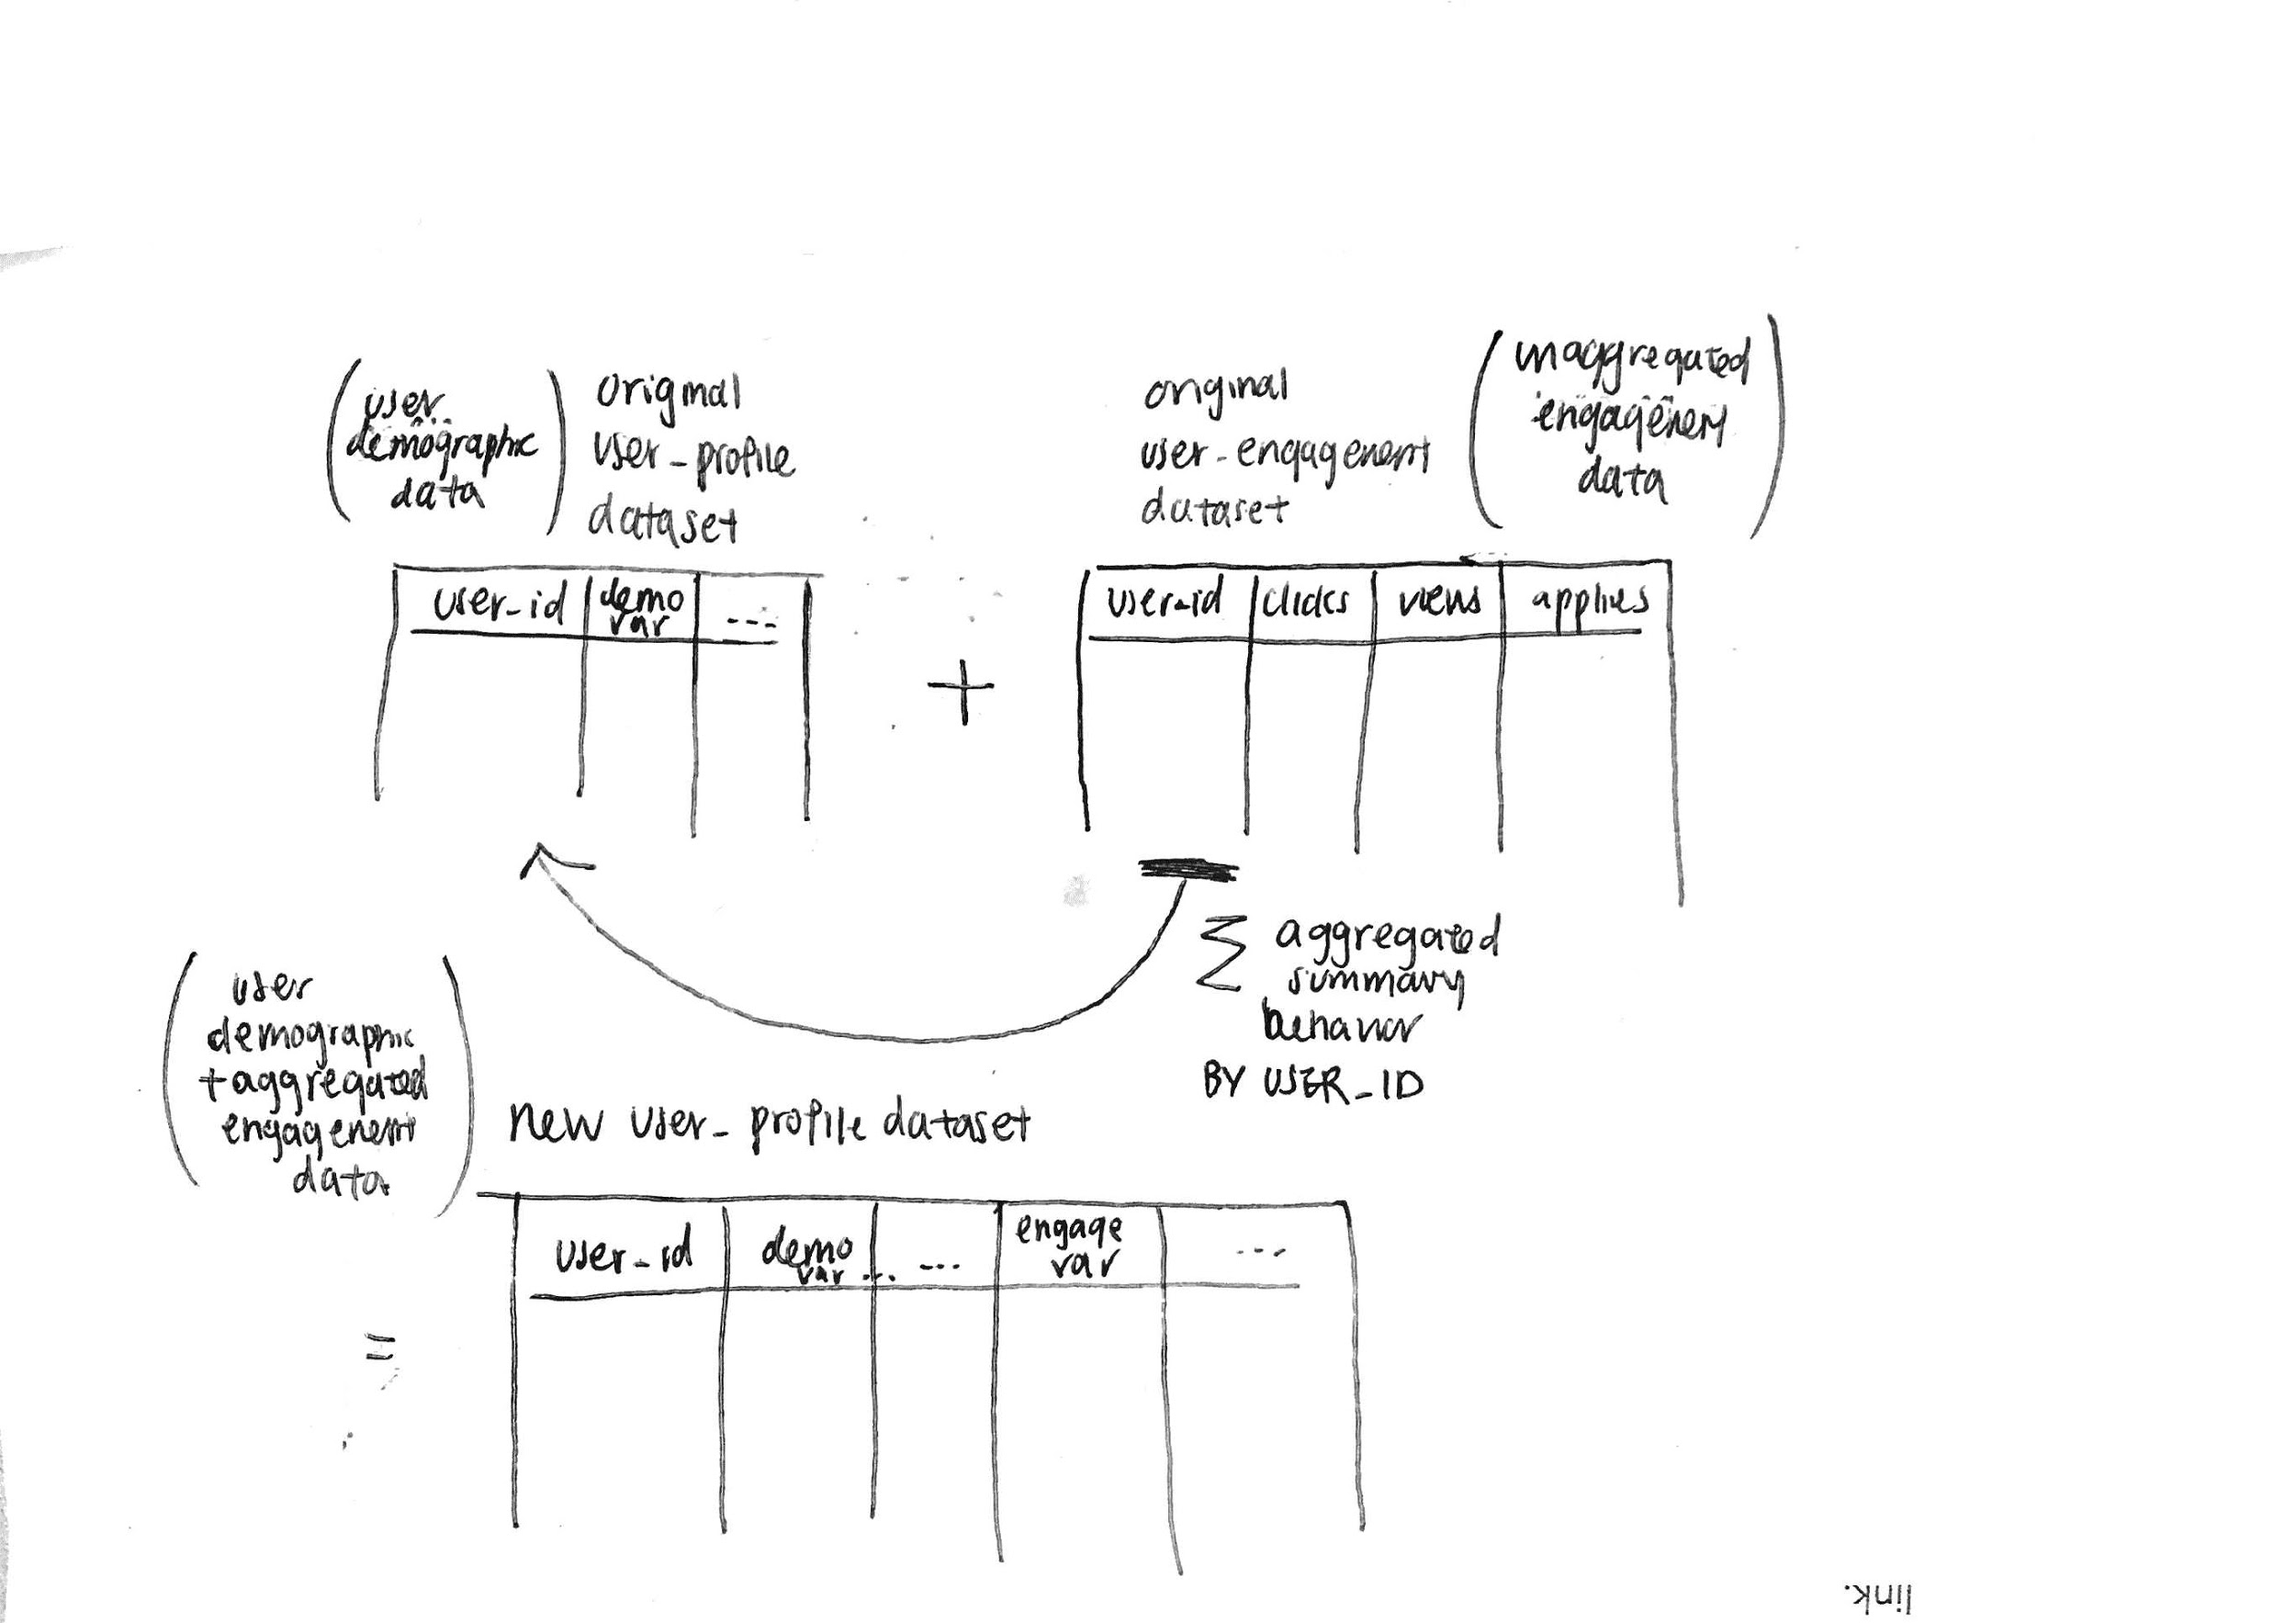 (user demographic data)
original
user_profile
dataset
original
user-engagement
dataset
(unaggregated
engagement
data)
user_id | demo var | ---
+
user_id | clicks | views | applies
Σ aggregated
summary
behavior
BY USER_ID
(user
demographic
+ aggregated
engagement
data)
new user_profile dataset
=
user_id | demo var ... | ... | engage var | ...
link.